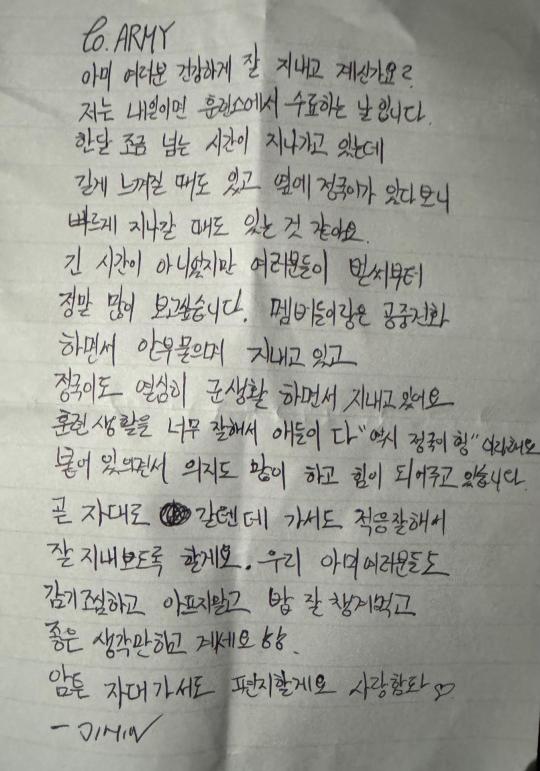 to. ARMY
아미 여러분 건강하게 잘 지내고 계신가요?
저는 내일이면 훈련소에서 수료하는 날입니다.
한달 조금 넘는 시간이 지나가고 있는데
길게 느껴질 때도 있고 옆에 정국이가 있다보니
빠르게 지나갈 때도 있는 것 같아요.
긴 시간이 아니였지만 여러분들이 벌써부터
정말 많이 보고싶습니다. 멤버들이랑은 공중전화
하면서 안부물으며 지내고 있고
정국이도 열심히 군생활 하면서 지내고 있어요
훈련 생활을 너무 잘해서 애들이 다 "역시 정국이 형" 이라해요
붙어 있으면서 의지도 많이 하고 힘이 되어주고 있습니다.
곧 자대로 갈텐데 가서도 적응잘해서
잘 지내보도록 할게요. 우리 아미여러분들도
감기조심하고 아프지말고 밥 잘 챙겨먹고
좋은 생각만하고 계세요
암튼 자대가서도 편지할게요 사랑함다♡
- JIMIN